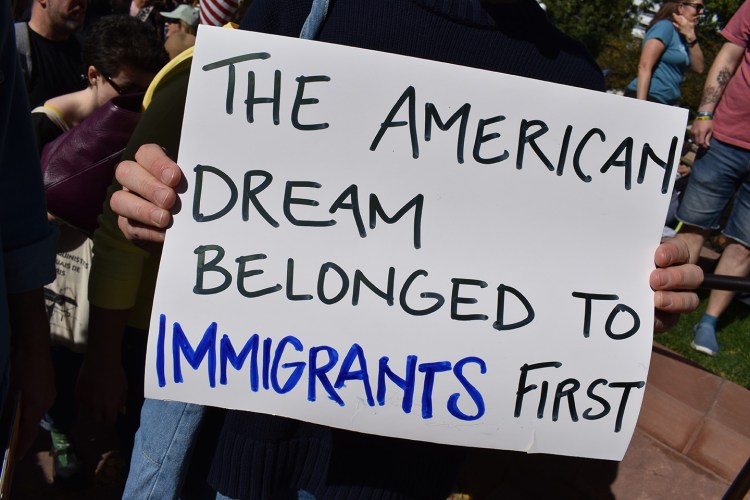 THE AMERICAN
DREAM
BELONGED TO
IMMIGRANTS FIRST